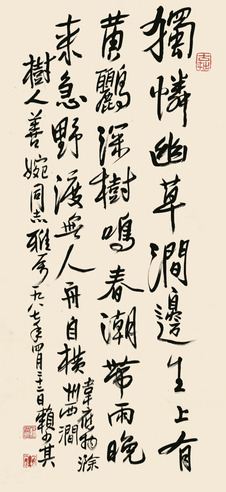 獨憐幽草澗邊生上有
黄鸝深樹鳴春潮帶雨晚
来急野渡無人舟自横
韋應物滁州西澗
樹人善婉同志雅属一九八七年四月二十二日賴少其